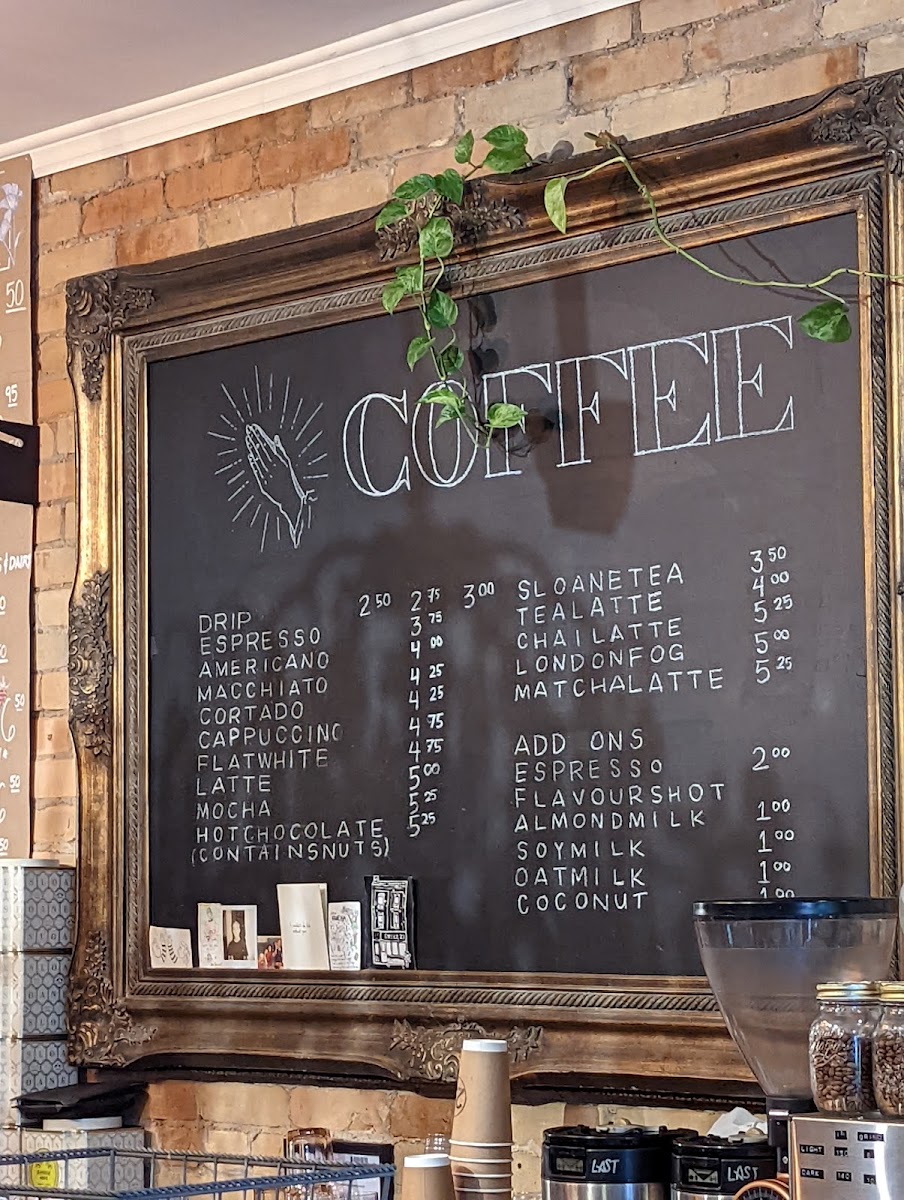 50
95
& DAIRY
50
50
50
COFFEE
DRIP 2 50 2 75 3 00
ESPRESSO 3 75
AMERICANO 4 00
MACCHIATO 4 25
CORTADO 4 25
CAPPUCCINO 4 75
FLATWHITE 4 75
LATTE 5 00
MOCHA 5 25
HOTCHOCOLATE 5 25
(CONTAINSNUTS)
SLOANETEA 3 50
TEALATTE 4 00
CHAILATTE 5 25
LONDONFOG 5 00
MATCHALATTE 5 25
ADD ONS
ESPRESSO 2 00
FLAVOURSHOT
ALMONDMILK 1 00
SOYMILK 1 00
OATMILK 1 00
COCONUT 1 00
LAST
LAST
GRIND
LIGHT
DARK